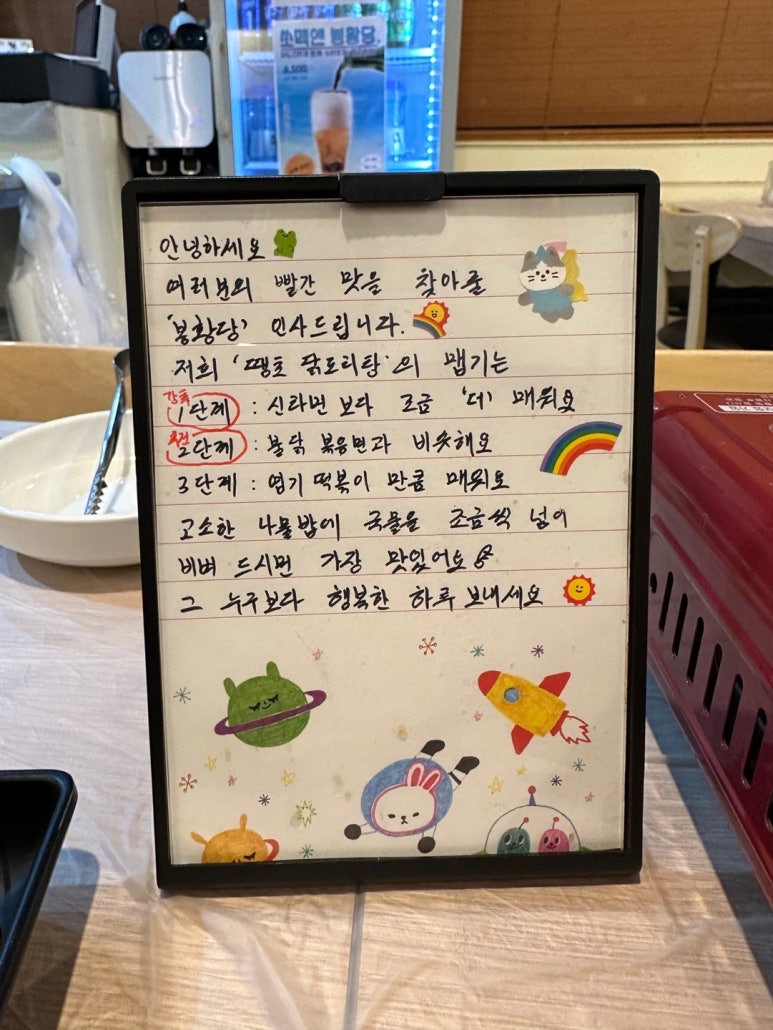 소맥엔 봉황당.
4,500
안녕하세요
여러분의 빨간 맛을 찾아줄
'봉황당' 인사드립니다.
저희 '땡초 닭도리탕'의 맵기는
강추
1단계 : 신라면 보다 조금 '더' 매워요
추천
2단계 : 불닭 볶음면과 비슷해요
3단계 : 엽기 떡볶이 만큼 매워요
고소한 나물밥에 국물을 조금씩 넣어
비벼 드시면 가장 맛있어요
그 누구보다 행복한 하루 보내세요